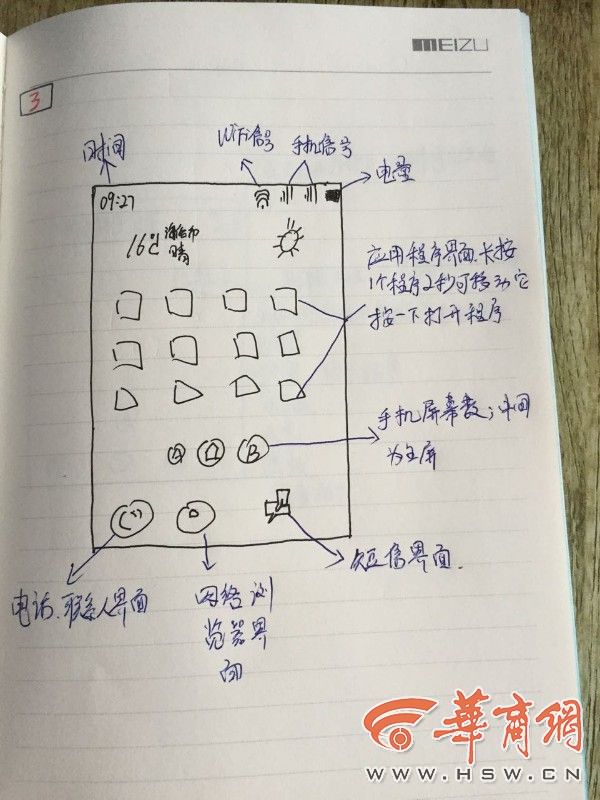 MEIZU
3
时间
WiFi信号
手机信号
电量
09:27
16℃
晴
应用程序界面.长按
1个程序2秒可移动它
按一下打开程序
A
B
手机屏幕数;中间
为主屏
短信界面.
电话.联系人界面
网络浏
览器界
面
华商網
WWW.HSW.CN